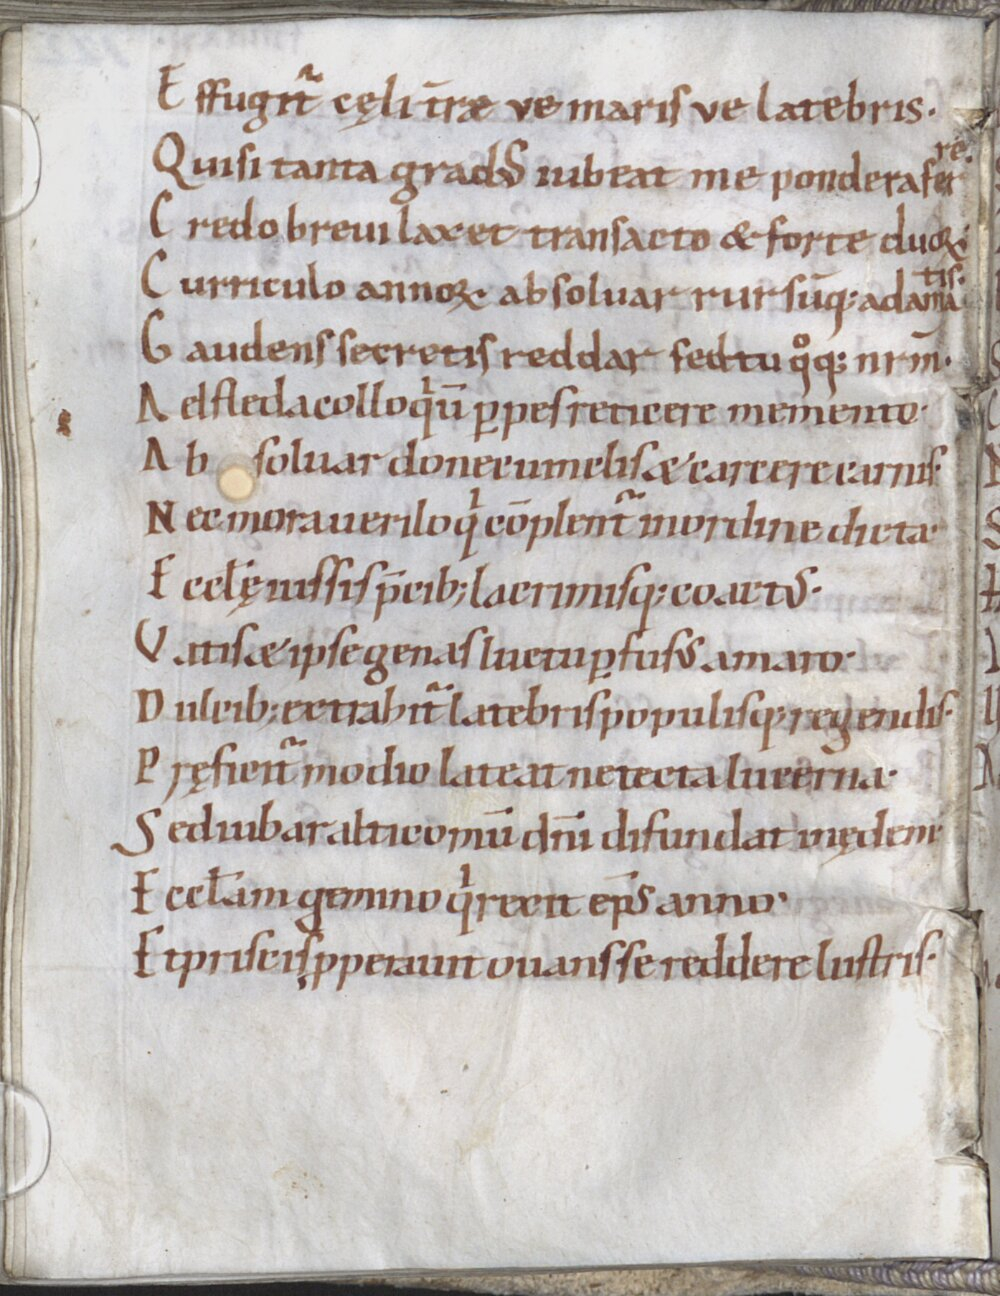 Effugiт̃ cęli tr̃æ ve maris ve latebris.
Quisi tanta gradꝰ iubeat me pondera ferre.
Credo breui laxet transacto & forte duoꝝ
Curriculo annoꝝ absoluar rursũq; adamatis.
Gaudens secretis reddar sed tu qͦq; nrm̃.
Aelfleda colloqͥũ ꝑpes reticere memento.
Absoluar donec umelisæ carcere carnis.
Nec mora ueriloqͥ cõplent̃ in ordine dicta.
Eccl̃ę iussis p̃cib; lacrimisq; coactꝰ.
Vatis & ipse genas luctu ꝑfusꝰ amaro.
Dulcib; extrahit̃ latebris populisq; regendis.
Pręficit̃ modio lateat ne tecta lucerna.
Sed iubar alticomũ dñi difundat in ędem
Eccl̃am gemino qͥ rexit ep̃s anno.
Et priscis ꝓperauit ouans se reddere lustris.